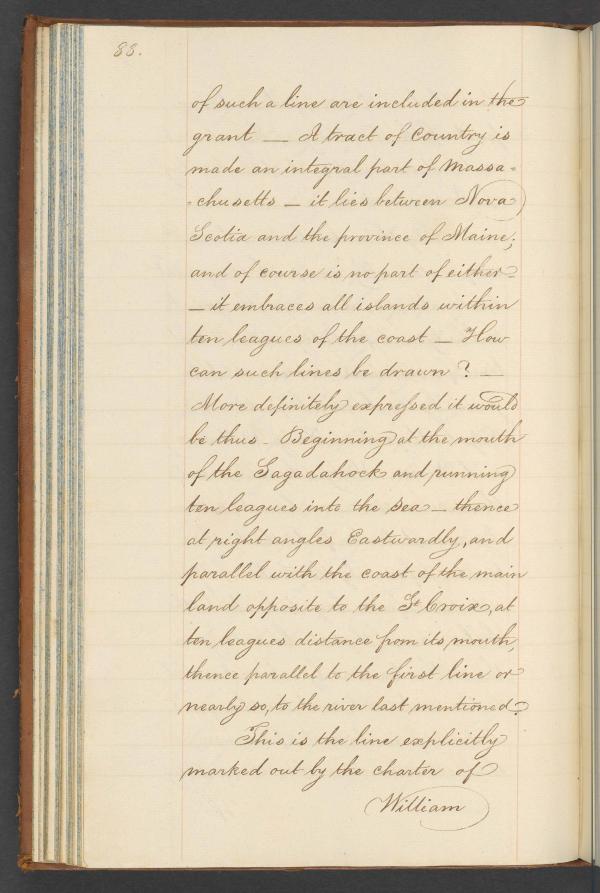 88.
of such a line are included in the
grant — A tract of Country is
made an integral part of Massa-
-chusetts — it lies between Nova
Scotia and the province of Maine;
and of course is no part of either
— it embraces all islands within
ten leagues of the coast — How
can such lines be drawn? —
More definitely expressed it would
be thus - Beginning at the mouth
of the Sagadahock and running
ten leagues into the Sea — thence
at right angles Eastwardly, and
parallel with the coast of the main
land opposite to the St Croix, at
ten leagues distance from its mouth,
thence parallel to the first line or
nearly so, to the river last mentioned?
This is the line explicitly
marked out by the charter of
William